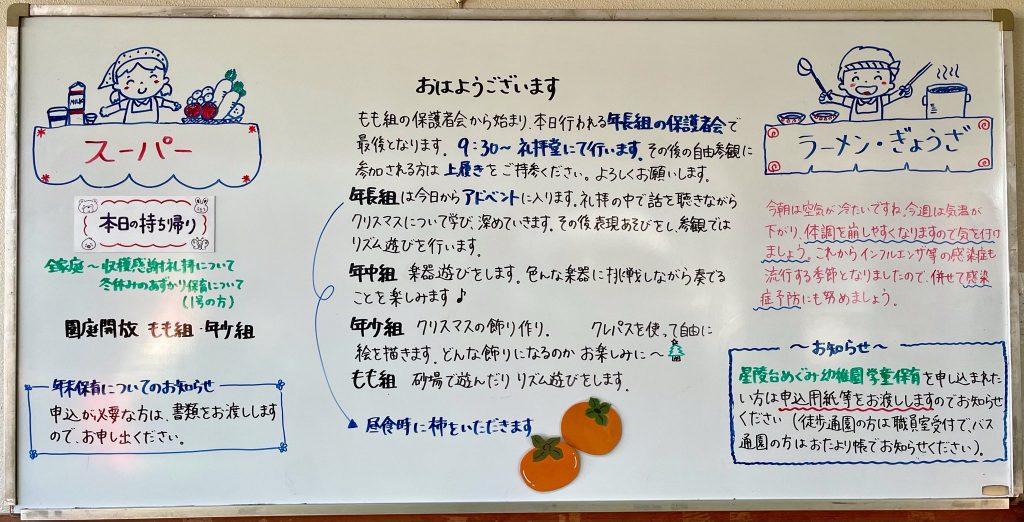 MILK
スーパー
本日の持ち帰り
全家庭～収穫感謝礼拝について
冬休みのあずかり保育について
(1号の方)
園庭開放 もも組・年少組
年末保育についてのお知らせ
申込が必要な方は、書類をお渡しします
ので、お申し出ください。
おはようございます
もも組の保護者会から始まり、本日行われる年長組の保護者会で
最後となります。9:30～礼拝堂にて行います。その後の自由参観に
参加される方は上履きをご持参ください。よろしくお願いします。
年長組は今日からアドベントに入ります。礼拝の中で話を聴きながら
クリスマスについて学び、深めていきます。その後表現あそびをし、参観では
リズム遊びを行います。
年中組 楽器遊びをします。色んな楽器に挑戦しながら奏でる
ことを楽しみます♪
年少組 クリスマスの飾り作り。 クレパスを使って自由に
絵を描きます。どんな飾りになるのか お楽しみに～
もも組 砂場で遊んだり リズム遊びをします。
▲昼食時に柿をいただきます
ラーメン・ぎょうざ
今朝は空気が冷たいですね。今週は気温が
下がり、体調を崩しやすくなりますので気を付け
ましょう。これからインフルエンザ等の感染症も
流行する季節となりましたので、併せて感染
症予防にも努めましょう。
～お知らせ～
星陵台めぐみ幼稚園学童保育を申し込まれた
い方は申込用紙等をお渡ししますのでお知らせ
ください (徒歩通園の方は職員室受付で、バス
通園の方はおたより帳でお知らせください)。